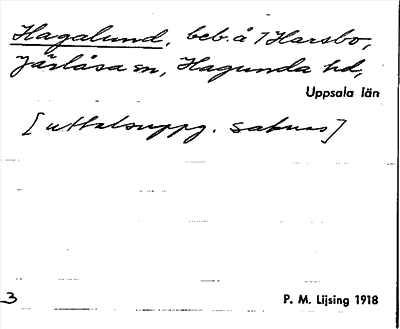 Hagalund, beb. å 7 Harsbo,
Järlåsa sn, Hagunda hd,
Uppsala län
[uttalsuppg. saknas]
3
P. M. Lijsing 1918